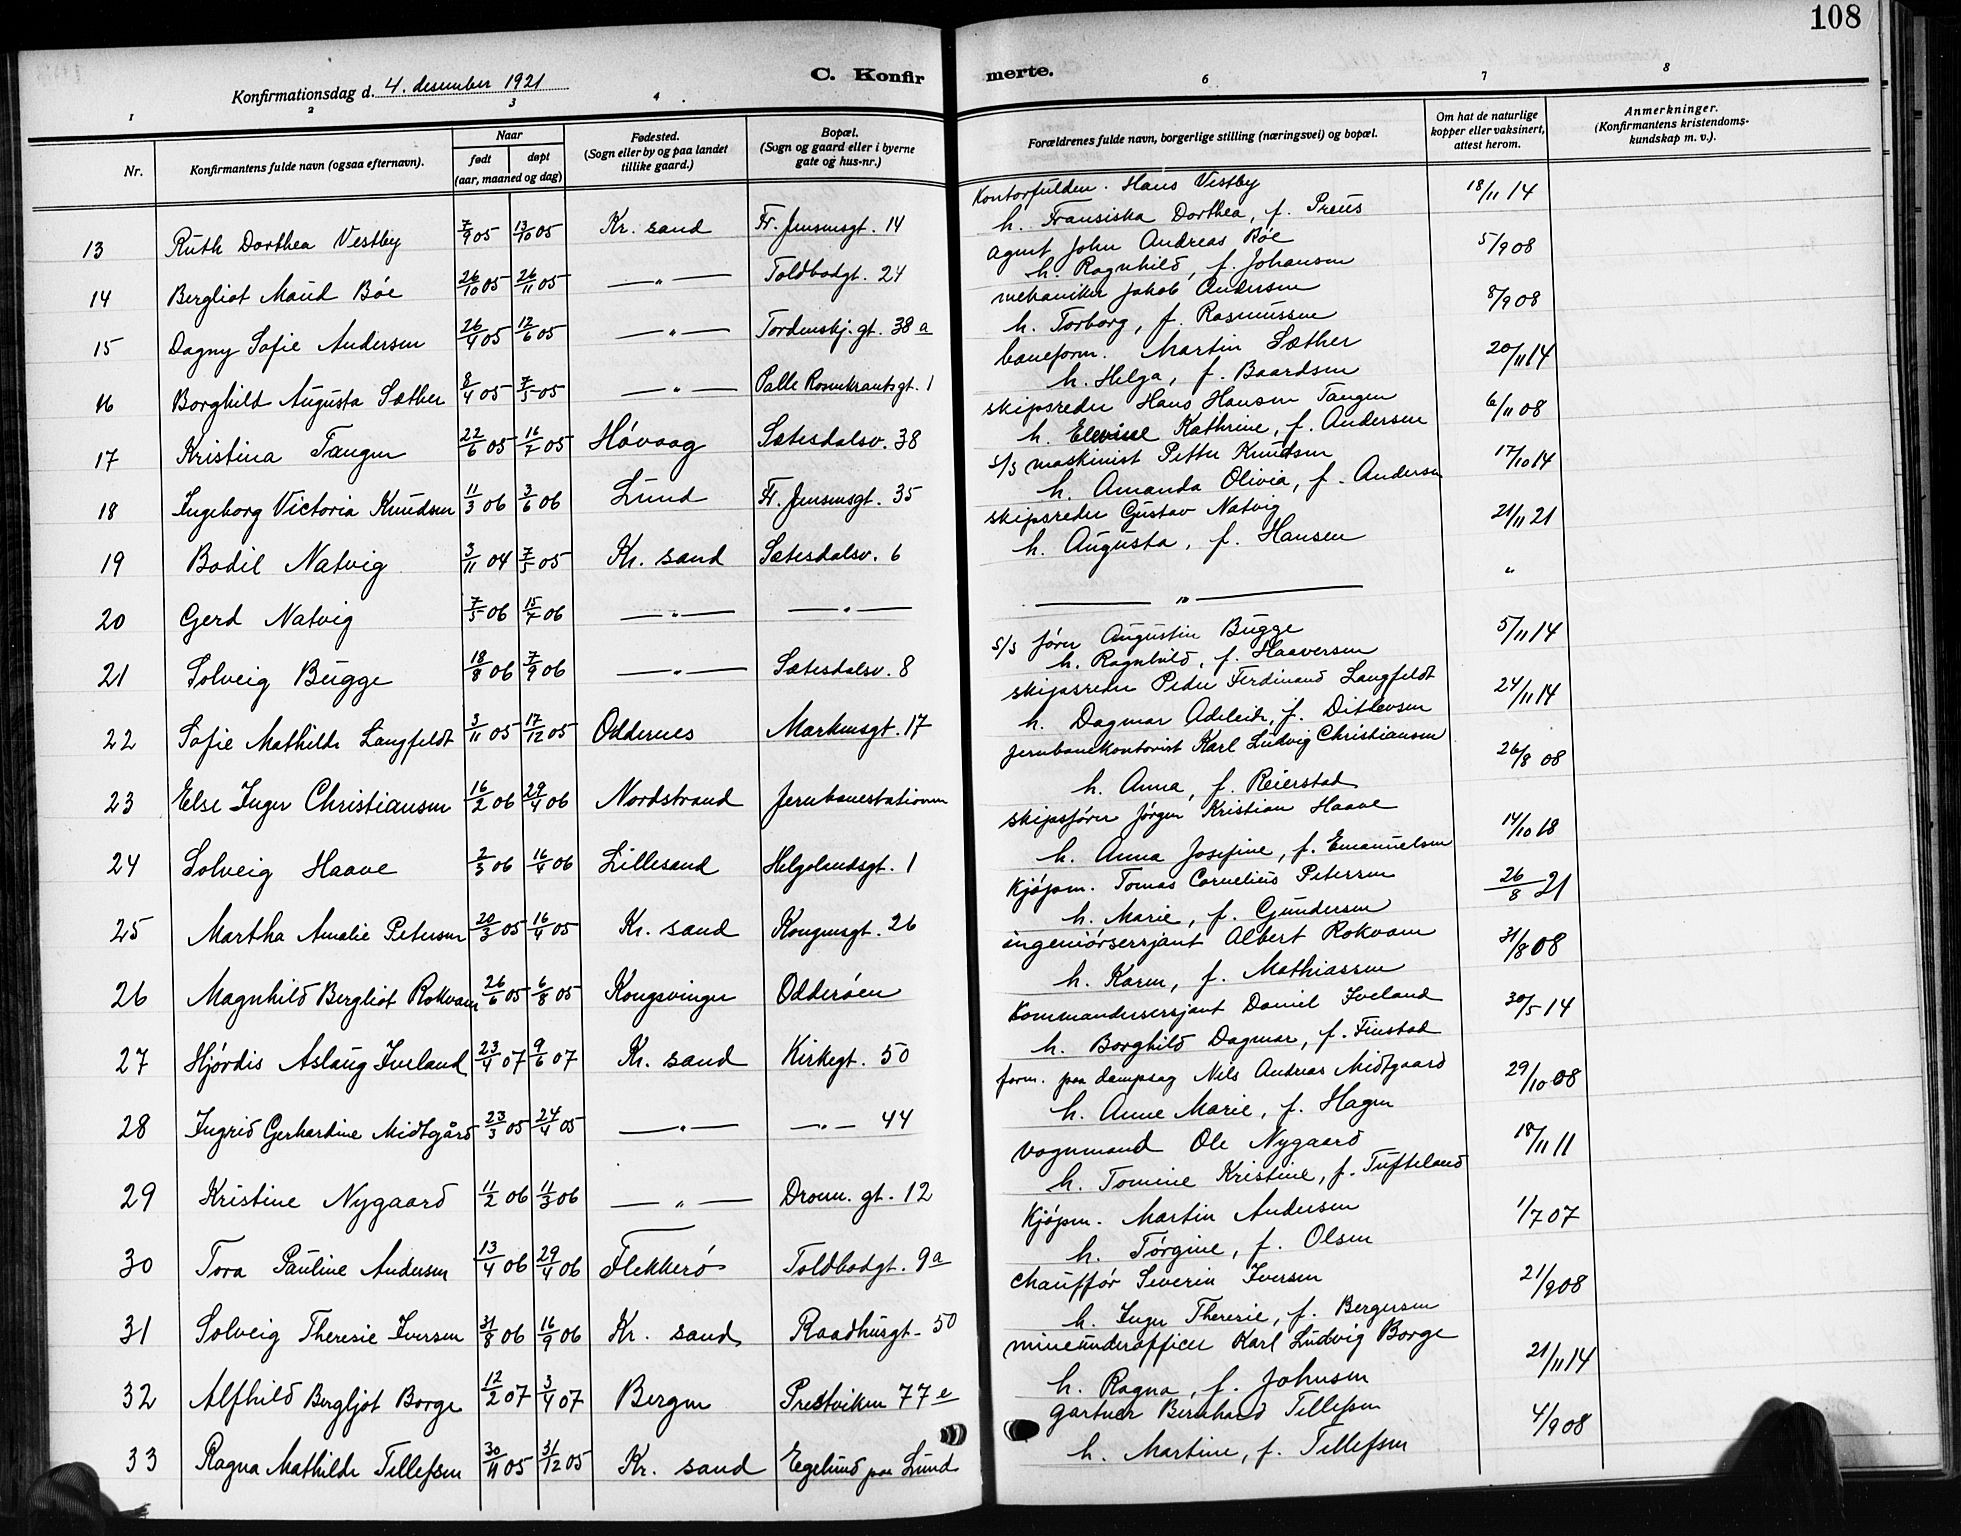 108
C. Konfirmerte.
Konfirmationsdag d. 4. desember 1921
1 2 3 4 6 7 8
Nr.
Konfirmantens fulde navn (ogsaa efternavn).
Naar
født døpt
(aar, maaned og dag)
Fødested.
(Sogn eller by og paa landet
tillike gaard.)
Bopæl.
(Sogn og gaard eller i byerne
gate og hus-nr.)
Forældrenes fulde navn, borgerlige stilling (næringsvei) og bopæl.
Om hat de naturlige
kopper eller vaksinert,
attest herom.
Anmerkninger.
(Konfirmantens kristendoms-
kundskap m. v.).
13 Ruth Dorthea Vestby 7/9 05 13/10 05 Kr. sand Fr. Jensensgt. 14
Kontorfulden. Hans Vestby 18/11 14
h. Fransiska Dorthea, f. Preus
14 Bergliot Maud Bøe 26/10 05 26/11 05 —"— Toldbodgt. 24
agent John Andreas Bøe 5/9 08
h. Ragnhild, f. Johansen
15 Dagny Sofie Andersen 26/4 05 12/6 05 —"— Tordenskj. gt. 38 a
mekaniker Jakob Andersen 8/9 08
h. Torborg, f. Rasmussen
16 Borghild Augusta Sæther 8/4 05 7/5 05 —"— Palle Rosenkrantsgt. 1
baneform. Martin Sæther 20/11 14
h. Helga, f. Baardsen
17 Kristina Tangen 22/6 05 16/7 05 Høvaag Sætesdalsv. 38
skipsreder Hans Hansen Tangen 6/11 08
h. Elevine Kathrine, f. Andersen
18 Ingeborg Victoria Knudsen 11/3 06 3/6 06 Lund Fr. Jensensgt. 35
s/s maskinist Petter Knudsen 17/10 14
h. Amanda Olivia, f. Andersen
19 Bodil Natvig 3/11 04 7/5 05 Kr. sand Sætesdalsv. 6
skipsreder Gustav Natvig 21/11 21
h. Augusta, f. Hansen
20 Gerd Natvig 7/5 06 15/7 06 —"— —"—
—"— "
21 Solveig Bugge 18/8 06 7/9 06 —"— Sætesdalsv. 8
s/s fører Augustin Bugge 5/11 14
h. Ragnhild, f. Haaversen
22 Sofie Mathilde Langfeldt 3/11 05 17/12 05 Oddernes Markensgt. 17
skipsreder Peder Ferdinand Langfeldt 24/11 14
h. Dagmar Adeleide, f. Ditlevsen
23 Else Inger Christiansen 16/2 06 29/4 06 Nordstrand Jernbanestationen
Jernbanekontorist Karl Ludvig Christiansen 26/8 08
h. Anna, f. Reierstad
24 Solveig Haave 2/3 06 16/4 06 Lillesand Helgolandsgt. 1
skipsfører Jørgen Kristian Haave 14/10 18
h. Anna Josefine, f. Emanuelsen
25 Martha Amalie Petersen 20/3 05 16/4 05 Kr. sand Kongensgt. 26
Kjøpm. Tomas Cornelius Petersen 26/8 21
h. Marie, f. Gundersen
26 Magnhild Bergliot Rokvam 26/6 05 6/8 05 Kongsvinger Odderøen
ingeniørsersjant Albert Rokvam 31/8 08
h. Karen, f. Mathiassen
27 Hjørdis Aslaug Iveland 23/4 07 9/6 07 Kr. sand Kirkegt. 50
Kommandersersjant Daniel Iveland 30/5 14
h. Borghild Dagmar, f. Finstad
28 Ingrid Gerhardine Midtgård 23/3 05 24/4 05 —"— —"— 44
form. paa dampsag Nils Andreas Midtgaard 29/10 08
h. Anne Marie, f. Hagen
29 Kristine Nygaard 11/2 06 11/3 06 —"— Dronn. gt. 12
vognmand Ole Nygaard 18/11 11
h. Tomine Kristine, f. Tufteland
30 Tora Pauline Andersen 13/4 06 29/4 06 Flekkerø Toldbodgt. 9a
Kjøpm. Martin Andersen 1/7 07
h. Tørgine, f. Olsen
31 Solveig Theresie Iversen 31/8 06 16/9 06 Kr. sand Raadhusgt. 50
Chauffør Severin Iversen 21/9 08
h. Inger Theresie, f. Bergersen
32 Alfhild Bergljot Borge 12/2 07 3/4 07 Bergen Prestviken 77 e
mineunderofficer Karl Ludvig Borge 21/11 14
h. Ragna, f. Johnsen
33 Ragna Mathilde Tellefsen 30/11 05 31/12 05 Kr. sand Egelund paa Lund
gartner Bernhard Tellefsen 4/9 08
h. Martine, f. Tellefsen